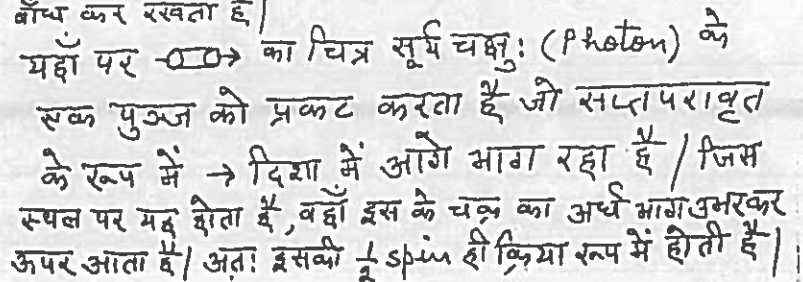 बाँध कर रखता है|
यहाँ पर → का चित्र सूर्य चक्षु: (Photon) के
एक पुञ्ज को प्रकट करता है जो सप्तपरावृत
के रूप में → दिशा में आगे भाग रहा है | जिस
स्थल पर यह होता है, वहाँ इस के चक्र का अर्ध भाग उभरकर
ऊपर आता है| अत: इसकी ½ spin ही क्रिया रूप में होती है|